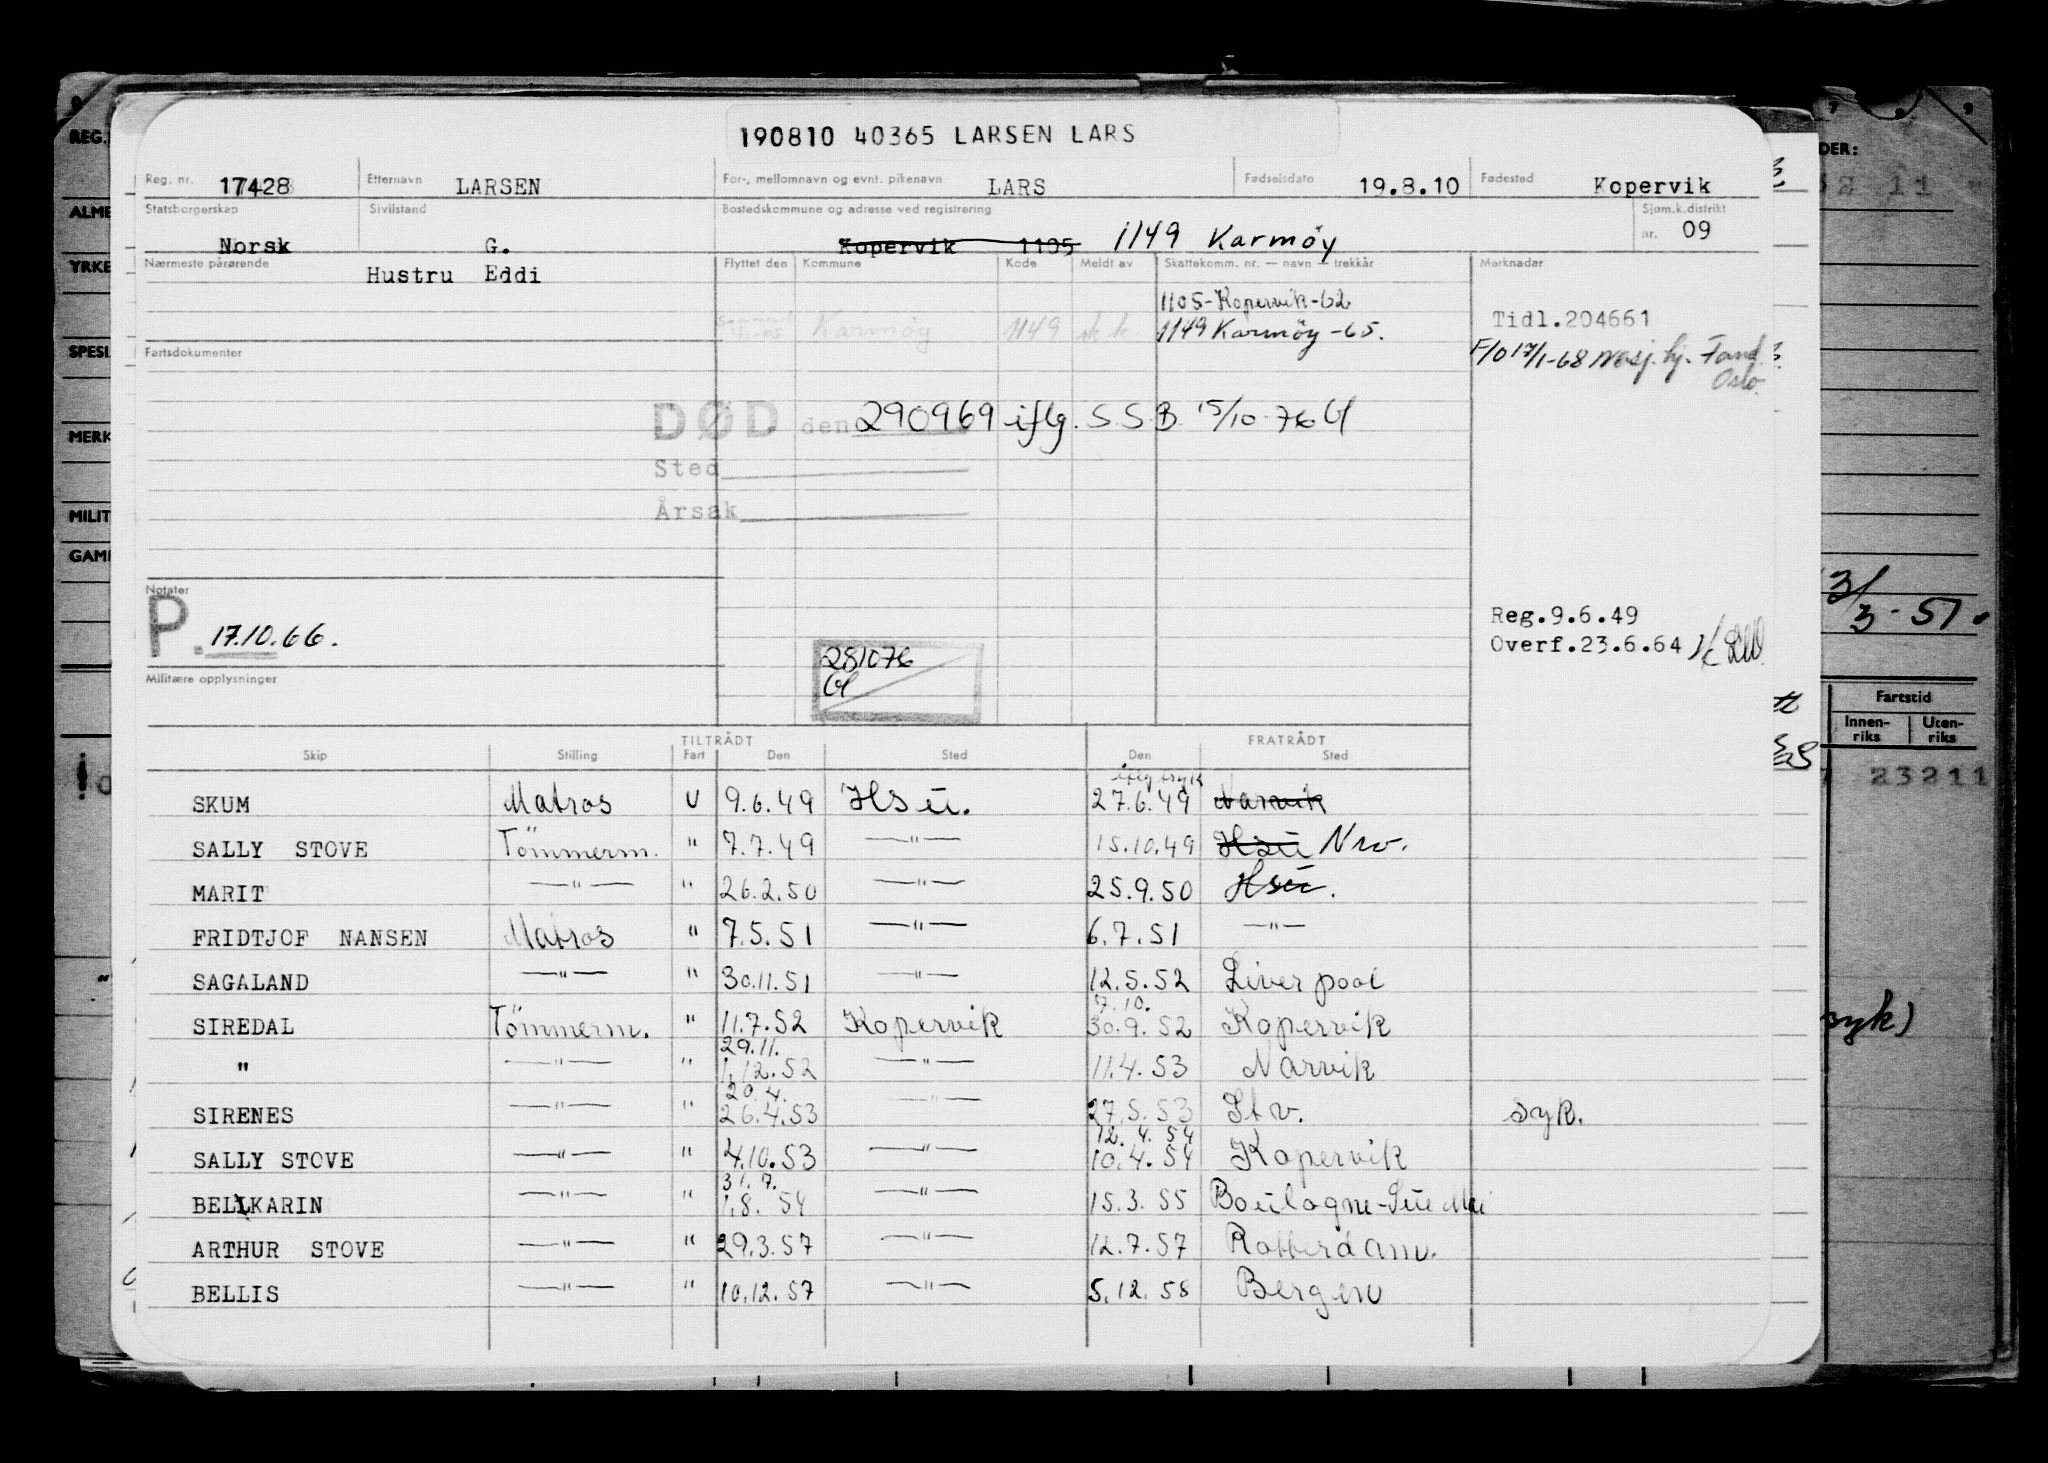 190810 40365 LARSEN LARS
Reg. nr. 17428 Etternavn LARSEN For-, mellomnavn og evnt. pikenavn LARS Fødselsdato 19.8.10 Fødested Kopervik
Statsborgerskap Norsk Sivilstand G. Bostedskommune og adresse ved registrering Kopervik 1105 1149 Karmöy Sjøm.k.distrikt nr. 09
Nærmeste pårørende Hustru Eddi Flyttet den Kommune Kode Meldt av Skattekomm. nr. — navn — trekkår Merknader
1105-Kopervik-62
Karmöy 1149 1149 Karmöy-65. Tidl.204661
Fartsdokumenter F/O 17/1-68 Oslo.
DØD den 290969 iflg. S.S.B. 15/10-76
Sted
Årsak
Notater
P. 17.10.66.
Reg.9.6.49
Overf.23.6.64
281076
Militære opplysninger
TILTRÅDT FRATRÅDT
Skip Stilling Fart Den Sted Den Sted
SKUM Matros U 9.6.49 Hsu. 27.6.49 Narvik
SALLY STOVE Tömmerm. " 7.7.49 —"— 15.10.49 Hsu Nrv.
MARIT —"— " 26.2.50 —"— 25.9.50 Hsu.
FRIDTJOF NANSEN Matros " 7.5.51 —"— 6.7.51 —"—
SAGALAND —"— " 30.11.51 —"— 12.5.52 Liverpool
7.10.
SIREDAL Tömmerm. " 11.7.52 Kopervik 30.9.52 Kopervik
29.11.
" —"— " 1.12.52 —"— 11.4.53 Narvik
20.4.
SIRENES —"— " 26.4.53 —"— 27.5.53 Stv. syk.
12.4.54
SALLY STOVE —"— " 4.10.53 —"— 10.4.54 Kopervik
31.7.
BELLKARIN —"— " 1.8.54 —"— 15.3.55 Boulogne-
ARTHUR STOVE —"— " 29.3.57 —"— 12.7.57 Rotterdam.
BELLIS —"— " 10.12.57 —"— 5.12.58 Bergen
REG.
ALME
YRKE
SPESI
MERK
MILIT
GAM
DER:
3/3-51.
Fartstid
Innenriks Utenriks
23211
syk)